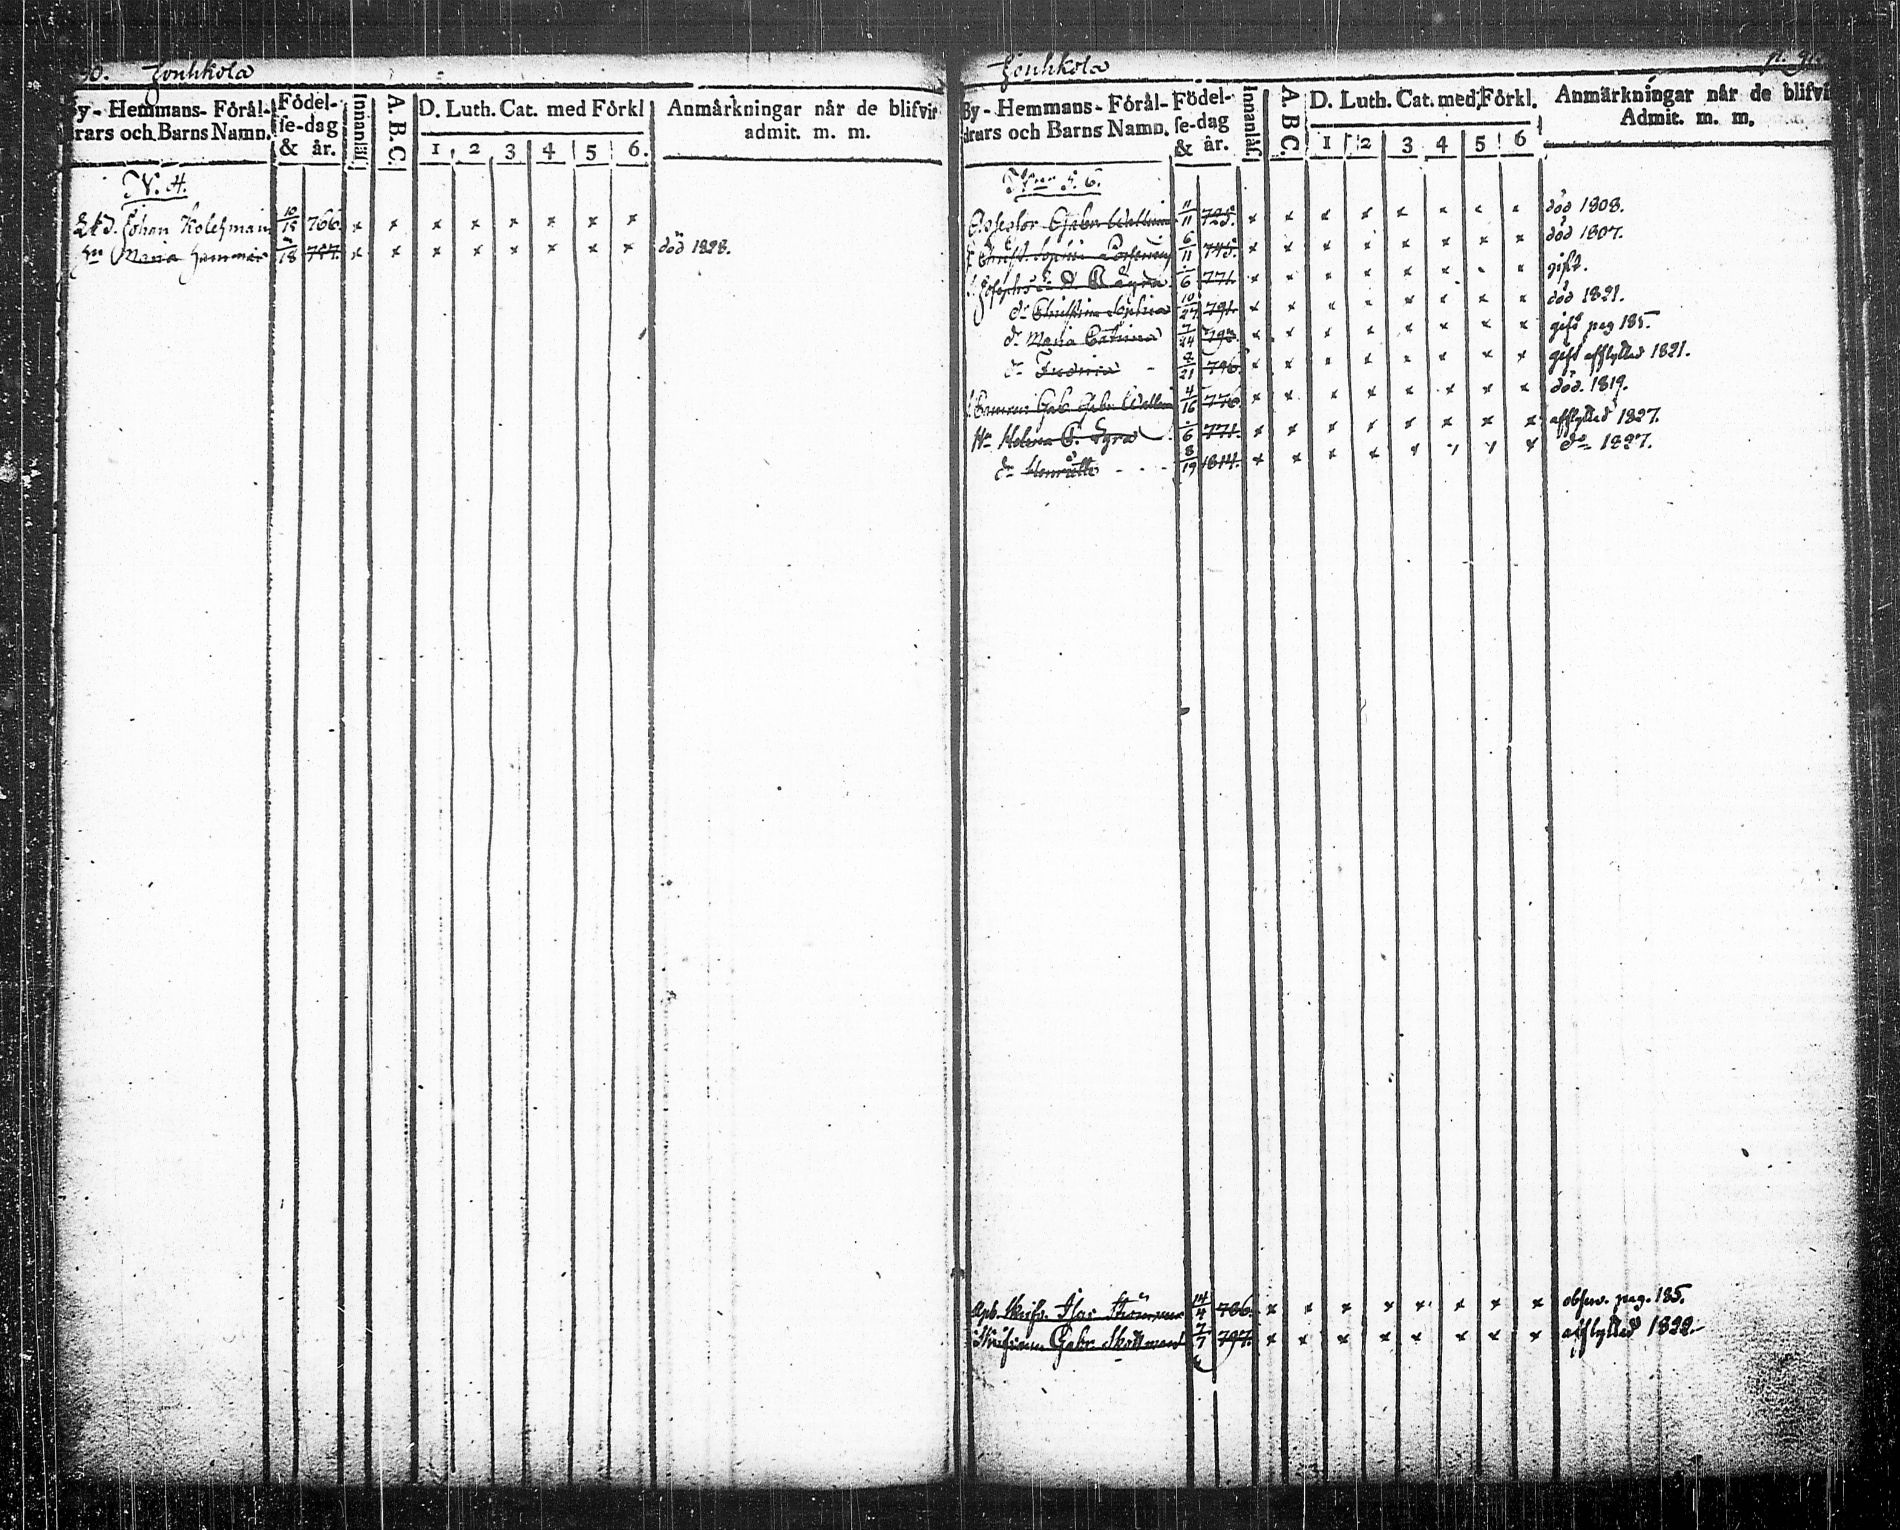 90. Jouhkola
By- Hemmans- Förål-
drars och Barns Namn.
Födel-
se-dag
& år.
Innanläs:
A. B. C.
D. Luth. Cat. med Förkl
1 2 3 4 5 6.
Anmårkningar når de blifvit
admit. m. m.
N. 4.
Johan Kolehmain 10/15 766. x x x x x x x x
Maria Hammar 18 787. x x x x x x x x död 1828.
Jouhkola p. 91.
By- Hemmans- Förål-
drars och Barns Namn.
Födel-
se-dag
& år.
Innanläs:
A. B. C.
D. Luth. Cat. med Förkl.
1 2 3 4 5 6
Anmärkningar når de blifvit
Admit. m. m.
5. 6.
Assessor Gabr. Wallenius 11/11 725. x x x x x x x x död 1808.
Christ. Sophia 6/11 745. x x x x x x x x död 1807.
6 771. x x x x x x x x gift.
dr Christina Sophia 10/27 791. x x x x x x x x död 1821.
dr Maria Catrina 7/24 793. x x x x x x x x gift pag 185.
dr 8/21 796. x x x x x x x x gift afflyttad 1821.
Gab. Gabr. Wallenius 4/16 776. x x x x x x x x död. 1819.
Helena C. 6 771. x x x x x x x x afflyttad 1827.
dr Henriette 8/19 1814. x x x x x x x x do 1827.
14/4 786. x x x x x x x x observ. pag. 185.
Gabr. 7/7 797. x x x x x x x x afflyttad 1822.